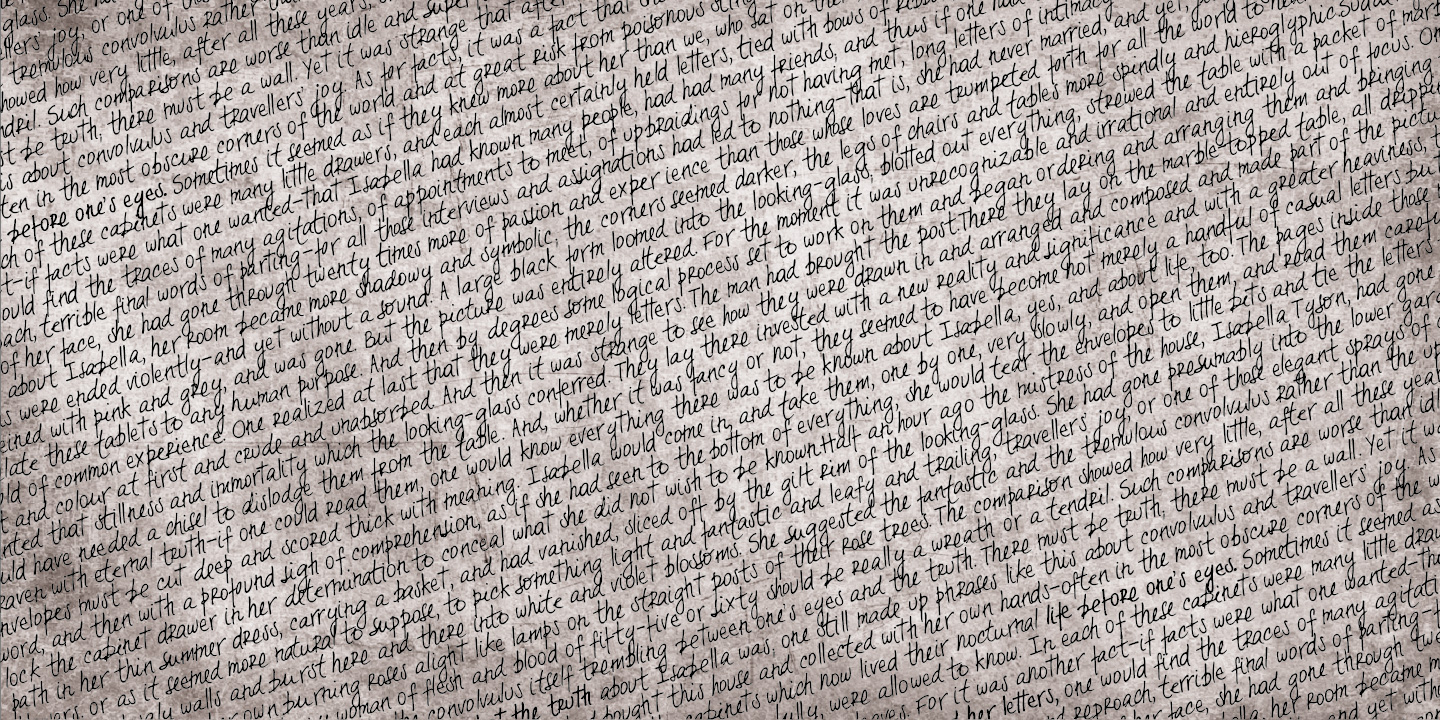 glass. She had
llers' joy, or one of
tremulous convolvulus rather
howed how very little, after all these years,
ndril. Such comparisons are worse than idle and super
st be truth; there must be a wall. Yet it was strange that after
ts about convolvulus and travellers' joy. As for facts, it was a fact that
ten in the most obscure corners of the world and at great risk from poisonous sting
before one's eyes. Sometimes it seemed as if they knew more about her than we, who sat on the
ch of these cabinets were many little drawers, and each almost certainly held letters, tied with bows of
t—if facts were what one wanted—that Isabella had known many people, had had many friends, and thus if one had
ould find the traces of many agitations, of appointments to meet, of upbraidings for not having met, long letters of intimacy
ach, terrible final words of parting—for all those interviews and assignations had led to nothing—that is, she had never married, and yet,
of her face, she had gone through twenty times more of passion and experience than those whose loves are trumpeted forth for all the world to
about Isabella, her room became more shadowy and symbolic; the corners seemed darker, the legs of chairs and tables more spindly and hieroglyphic.Sudd
s were ended violently—and yet without a sound. A large black form loomed into the looking-glass; blotted out everything, strewed the table with a packet of marb
eined with pink and grey, and was gone. But the picture was entirely altered. For the moment it was unrecognizable and irrational and entirely out of focus. On
late these tablets to any human purpose. And then by degrees some logical process set to work on them and began ordering and arranging them and bringing
old of common experience. One realized at last that they were merely letters. The man had brought the post.There they lay on the marble-topped table, all drippi
t and colour at first and crude and unabsorbed. And then it was strange to see how they were drawn in and arranged and composed and made part of the pictu
nted that stillness and immortality which the looking-glass conferred. They lay there invested with a new reality and significance and with a greater heaviness,
uld have needed a chisel to dislodge them from the table. And, whether it was fancy or not, they seemed to have become not merely a handful of casual letters bu
raven with eternal truth—if one could read them, one would know everything there was to be known about Isabella, yes, and about life, too. The pages inside those
nvelopes must be cut deep and scored thick with meaning. Isabella would come in, and take them, one by one, very slowly, and open them, and read them carefu
word, and then with a profound sigh of comprehension, as if she had seen to the bottom of everything, she would tear the envelopes to little bits and tie the letters
lock the cabinet drawer in her determination to conceal what she did not wish to be known.Half an hour ago the mistress of the house, Isabella Tyson, had gone
path in her thin summer dress, carrying a basket, and had vanished, sliced off by the gilt rim of the looking-glass. She had gone presumably into the lower gar
owers; or as it seemed more natural to suppose, to pick something light and fantastic and leafy and trailing, travellers' joy, or one of those elegant sprays of
ugly walls and burst here and there into white and violet blossoms. She suggested the fantastic and the tremulous convolvulus rather than the up
own burning roses alight like lamps on the straight posts of their rose trees. The comparison showed how very little, after all these yea
woman of flesh and blood of fifty-five or sixty should be really a wreath or a tendril. Such comparisons are worse than idl
the convolvulus itself trembling between one's eyes and the truth. There must be truth; there must be a wall. Yet it wa
t the truth about Isabella was; one still made up phrases like this about convolvulus and travellers' joy. As
bought this house and collected with her own hands—often in the most obscure corners of the w
cabinets which now lived their nocturnal life before one's eyes. Sometimes it seemed as
fully, were allowed to know. In each of these cabinets were many little draw
eaves. For it was another fact—if facts were what one wanted—tha
her letters, one would find the traces of many agitati
reproach, terrible final words of parting
face, she had gone through twe
her room became m
yet witho